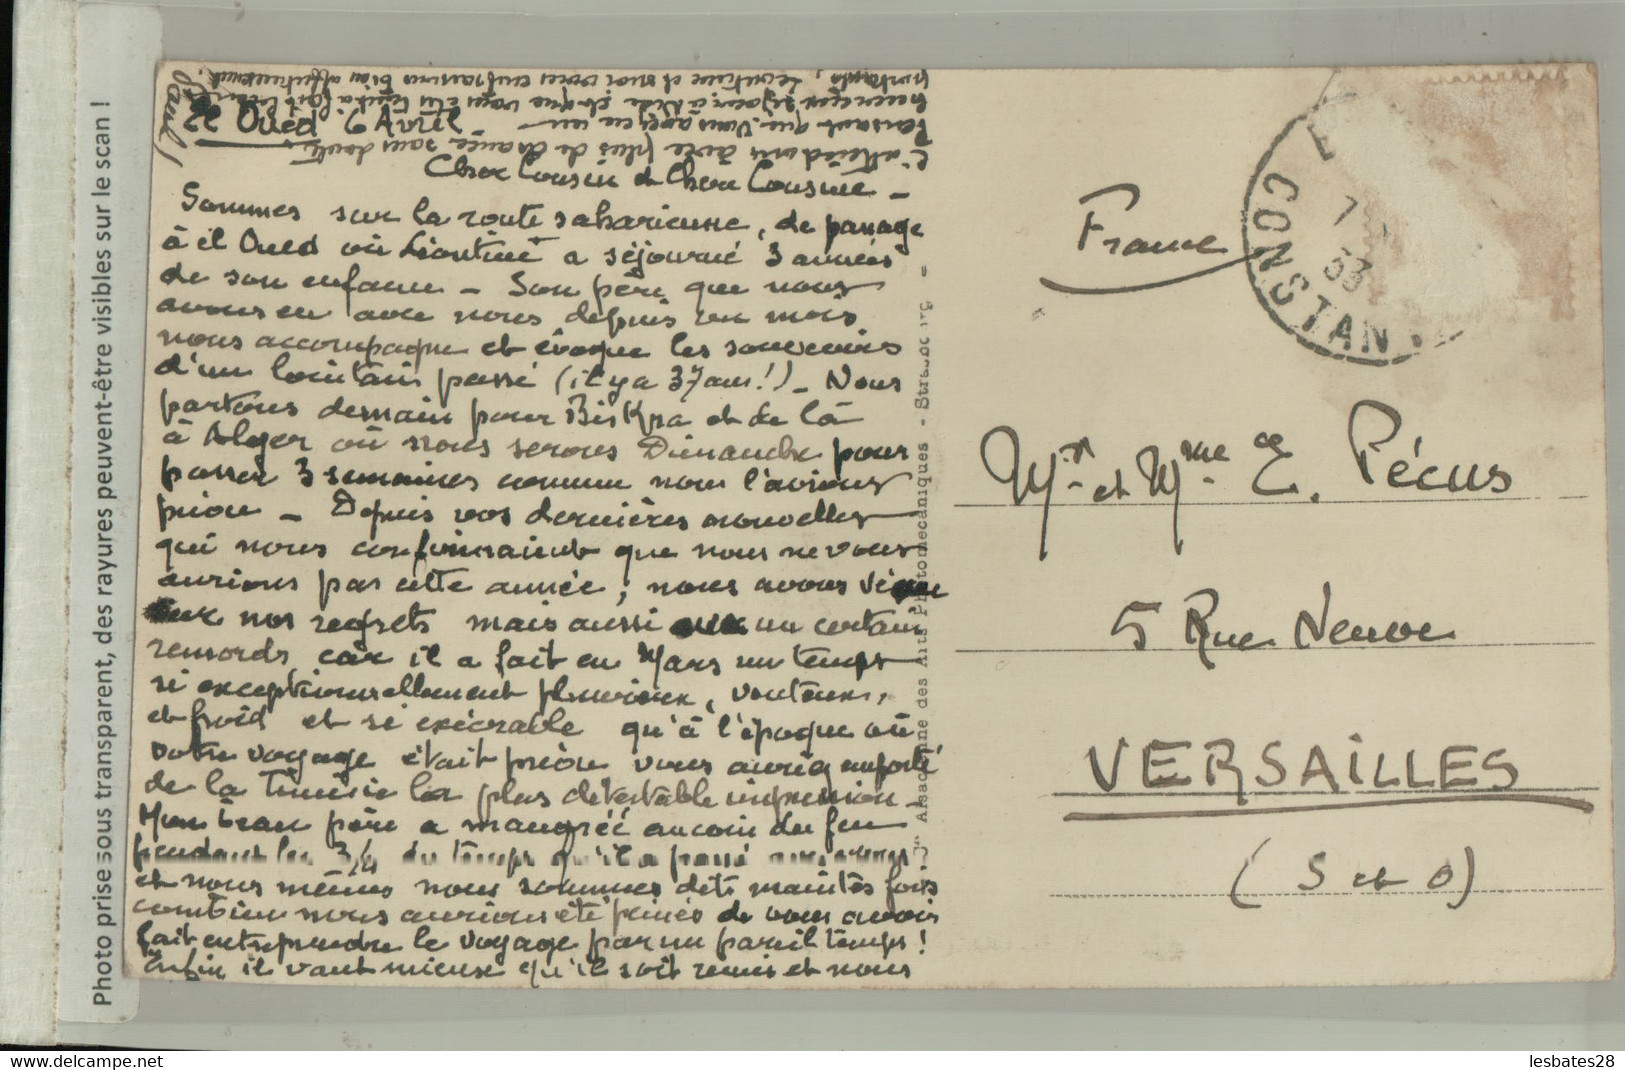 El Oued 6 Avril
Cher Cousin et Chère Cousine –
Sommes sur la route saharienne, de passage
à El Oued où Léontine a séjourné 3 années
de son enfance – Son père que nous
avons eu avec nous depuis un mois
nous accompagne et évoque les souvenirs
d'un lointain passé (il y a 37 ans !) – Nous
partons demain pour Biskra et de là
à Alger où nous serons Dimanche pour
passer 3 semaines comme nous l'avions
prévu – Depuis vos dernières nouvelles
qui nous confirmaient que nous ne vous
aurions pas cette année, nous avons vécu
sur nos regrets mais aussi sur un certain
remords car il a fait en Mars un temps
si exceptionnellement pluvieux, venteux,
et froid et si exécrable qu'à l'époque où
votre voyage était prévu vous auriez emporté
de la Tunisie la plus détestable impression –
Mon beau père a maugréé au coin du feu
pendant les 3/4 du temps qu'il a passé
et nous mêmes nous sommes dit maintes fois
combien nous aurions été peinés de vous avoir
fait entreprendre le voyage par un pareil temps !
Enfin il vaut mieux qu'il soit remis et nous
l'attendons avec plus de chance sans doute
Pensant que vous avez eu un
heureux séjour à et que vous êtes tout à fait
portants, Léontine et moi vous embrassons bien affectueusement.
Paul
France
CONSTAN
7
53
Mr et Mme E. Pécus
5 Rue Neuve
VERSAILLES
(S et O)
Photo prise sous transparent, des rayures peuvent-être visibles sur le scan !
des Arts Photomécaniques - Strasbourg -
lesbates28